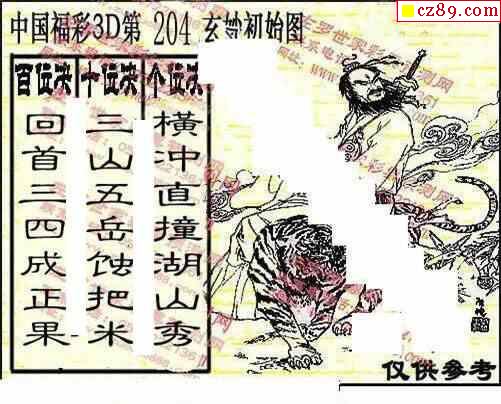 cz89.com
中国福彩3D第 204 玄妙初始图
百位决 十位决 个位决
回首三四成正果
三山五岳蚀把米
横冲直撞湖山秀
仅供参考